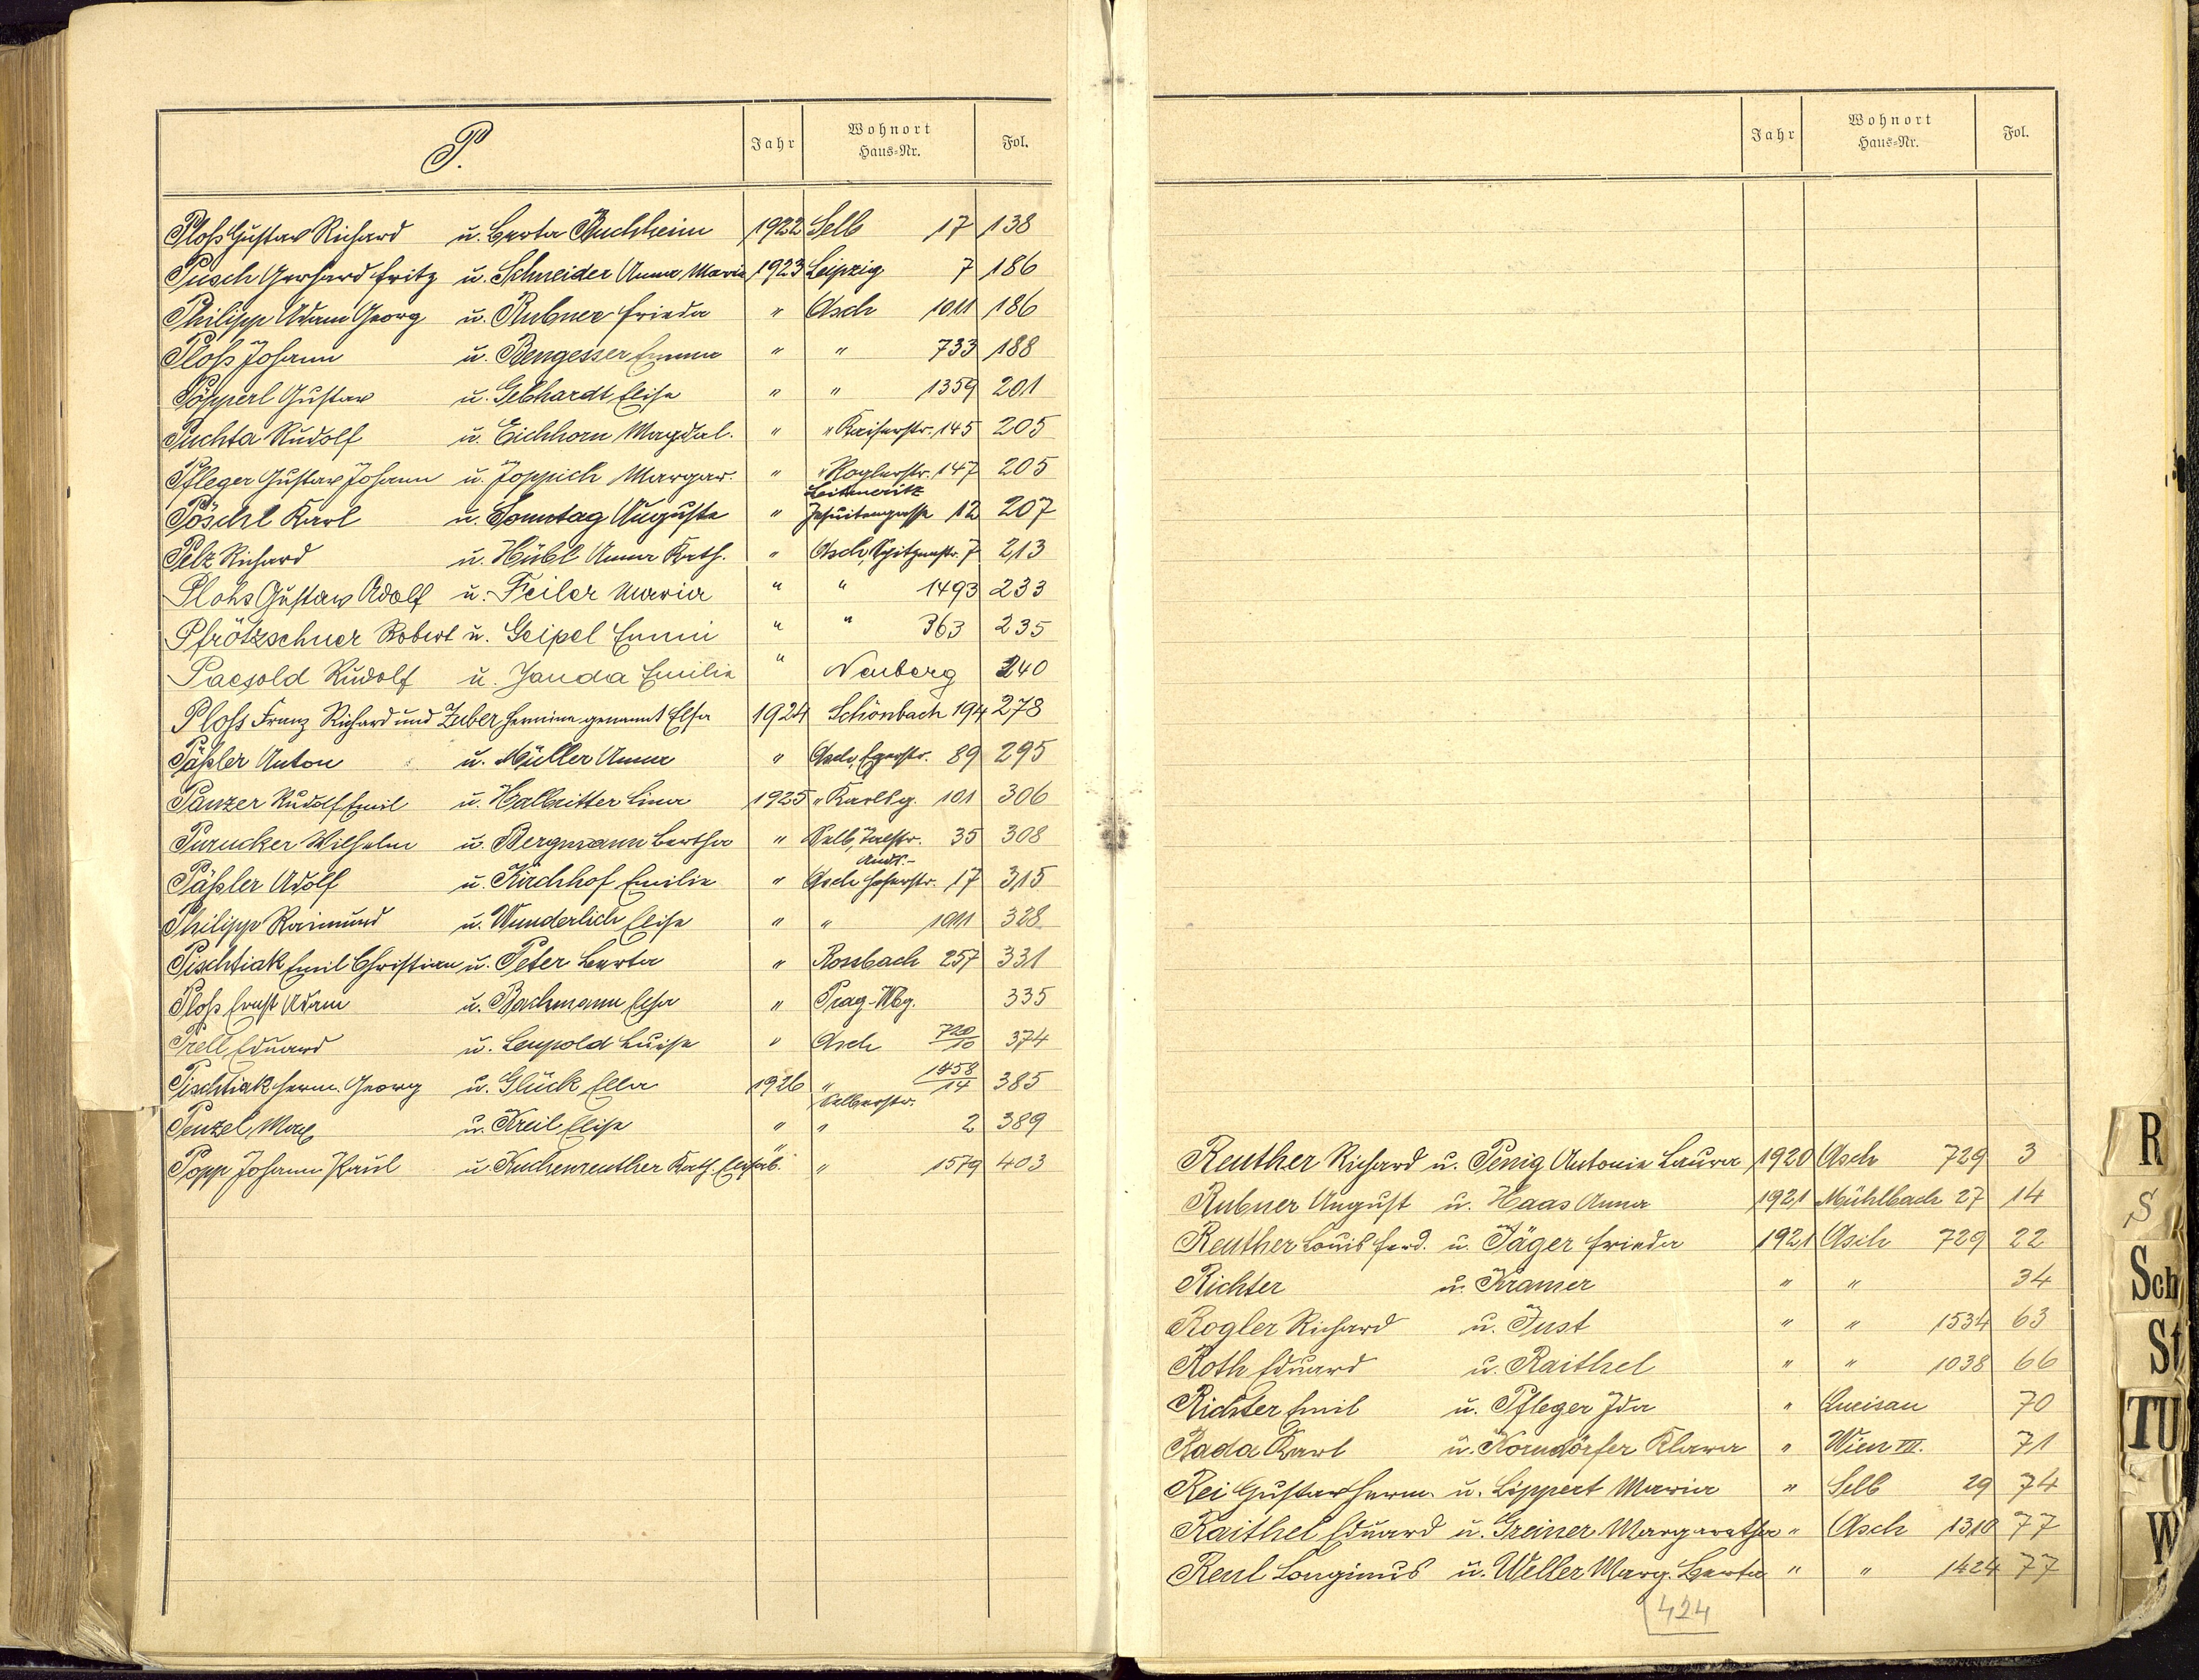 P.
Jahr
Wohnort
Haus-Nr.
Fol.
Ploß Gustav Richard u. Berta Buchheim 1922 Selb 17 138
Pusch Gerhard Fritz u. Schneider Anna Maria 1923 Leipzig 7 186
Philipp Adam Georg u. Rubner Frieda " Asch 1011 186
Ploß Johann u. Bengesser Emma " " 733 188
Pöpperl Gustav u. Gebhardt Elise " " 1359 201
Puchta Rudolf u. Eichhorn Magdal. " " Kaiserstr. 145 205
Pfleger Gustav Johann u. Joppich Margar. " " Roglerstr. 147 205
Leitmeritz
Pöschl Karl u. Sonntag Auguste " Jesuitengasse 12 207
Pelz Richard u. Hübl Anna Kath. " Asch, Spitzenstr. 7 213
Plohs Gustav Adolf u. Feiler Maria " " 1493 233
Pfrötzschner Robert u. Geipel Emmi " " 363 235
Paesold Rudolf u. Janda Emilie " Neuberg 240
Ploß Franz Richard und Zuber Hermine genannt Elsa 1924 Schönbach 194 278
Päßler Anton u. Müller Anna " Asch, Egerstr. 89 295
Panzer Rudolf Emil u. Halbritter Lina 1925 " Karlsg. 101 306
Purucker Wilhelm u. Bergmann Bertha " Selb, Talstr. 35 308
Andr.-
Päßler Adolf u. Kirchhof Emilie " Asch Hoferstr. 17 315
Philipp Raimund u. Wunderlich Elise " " 1011 328
Pischtiak Emil Christian u. Peter Berta " Rossbach 257 331
Ploß Ernst Adam u. Bachmann Elsa " Prag-Wbg. 335
Prell Eduard u. Leupold Luise " Asch 720/10 374
Pischtiak Herm. Georg u. Glück Ella 1926 " 1458/14 385
Selberstr.
Penzel Max u. Kreil Elise " " 2 389
Popp Johann Paul u. Kuchenreuther Kath. Elisab. " " 1579 403
Jahr
Wohnort
Haus-Nr.
Fol.
Reuther Richard u. Penig Antonie Laura 1920 Asch 729 3
Rubner August u. Haas Anna 1921 Mühlbach 27 14
Reuther Louis Ferd. u. Jäger Frieda 1921 Asch 729 22
Richter u. Kramer " " 34
Rogler Richard u. Just " " 1534 63
Roth Eduard u. Raithel " " 1038 66
Richter Emil u. Pfleger Ida " 70
Rada Karl u. Korndörfer Klara " Wien VII. 71
Rei Gustav Herm. u. Lippert Maria " Selb 29 74
Raithel Eduard u. Greiner Margaretha " Asch 1310 77
Reul Longinus u. Weller Marg. Berta " " 1424 77
424
R
S
Sch
St
TU
W